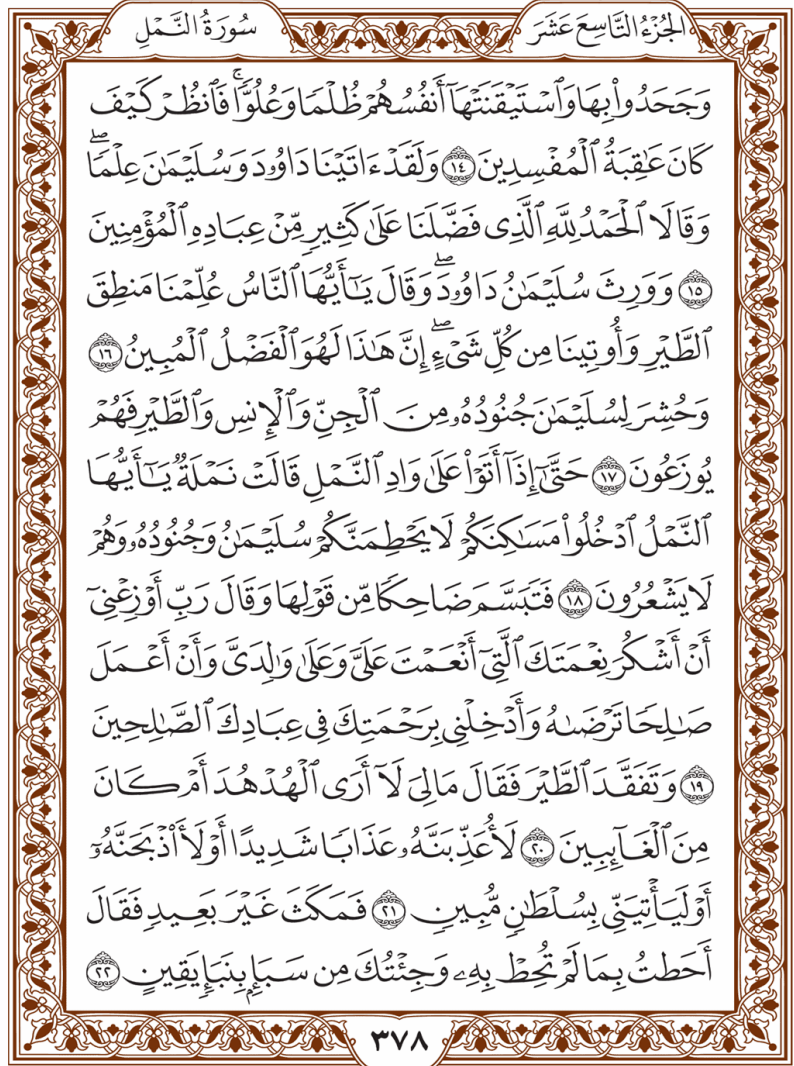 الجُزْءُ التَّاسِعَ عَشَرَ
سُورَةُ النَّمْلِ
وَجَحَدُوا۟ بِهَا وَٱسْتَيْقَنَتْهَآ أَنفُسُهُمْ ظُلْمًا وَعُلُوًّا ۚ فَٱنظُرْ كَيْفَ
كَانَ عَٰقِبَةُ ٱلْمُفْسِدِينَ ١٤ وَلَقَدْ ءَاتَيْنَا دَاوُۥدَ وَسُلَيْمَٰنَ عِلْمًا ۖ
وَقَالَا ٱلْحَمْدُ لِلَّهِ ٱلَّذِى فَضَّلَنَا عَلَىٰ كَثِيرٍ مِّنْ عِبَادِهِ ٱلْمُؤْمِنِينَ
١٥ وَوَرِثَ سُلَيْمَٰنُ دَاوُۥدَ ۖ وَقَالَ يَٰٓأَيُّهَا ٱلنَّاسُ عُلِّمْنَا مَنطِقَ
ٱلطَّيْرِ وَأُوتِينَا مِن كُلِّ شَىْءٍ ۖ إِنَّ هَٰذَا لَهُوَ ٱلْفَضْلُ ٱلْمُبِينُ ١٦
وَحُشِرَ لِسُلَيْمَٰنَ جُنُودُهُۥ مِنَ ٱلْجِنِّ وَٱلْإِنسِ وَٱلطَّيْرِ فَهُمْ
يُوزَعُونَ ١٧ حَتَّىٰٓ إِذَآ أَتَوْا۟ عَلَىٰ وَادِ ٱلنَّمْلِ قَالَتْ نَمْلَةٌ يَٰٓأَيُّهَا
ٱلنَّمْلُ ٱدْخُلُوا۟ مَسَٰكِنَكُمْ لَا يَحْطِمَنَّكُمْ سُلَيْمَٰنُ وَجُنُودُهُۥ وَهُمْ
لَا يَشْعُرُونَ ١٨ فَتَبَسَّمَ ضَاحِكًا مِّن قَوْلِهَا وَقَالَ رَبِّ أَوْزِعْنِىٓ
أَنْ أَشْكُرَ نِعْمَتَكَ ٱلَّتِىٓ أَنْعَمْتَ عَلَىَّ وَعَلَىٰ وَٰلِدَىَّ وَأَنْ أَعْمَلَ
صَٰلِحًا تَرْضَىٰهُ وَأَدْخِلْنِى بِرَحْمَتِكَ فِى عِبَادِكَ ٱلصَّٰلِحِينَ
١٩ وَتَفَقَّدَ ٱلطَّيْرَ فَقَالَ مَا لِىَ لَآ أَرَى ٱلْهُدْهُدَ أَمْ كَانَ
مِنَ ٱلْغَآئِبِينَ ٢٠ لَأُعَذِّبَنَّهُۥ عَذَابًا شَدِيدًا أَوْ لَأَا۟ذْبَحَنَّهُۥٓ
أَوْ لَيَأْتِيَنِّى بِسُلْطَٰنٍ مُّبِينٍ ٢١ فَمَكَثَ غَيْرَ بَعِيدٍ فَقَالَ
أَحَطتُ بِمَا لَمْ تُحِطْ بِهِۦ وَجِئْتُكَ مِن سَبَإٍۭ بِنَبَإٍ يَقِينٍ ٢٢
٣٧٨